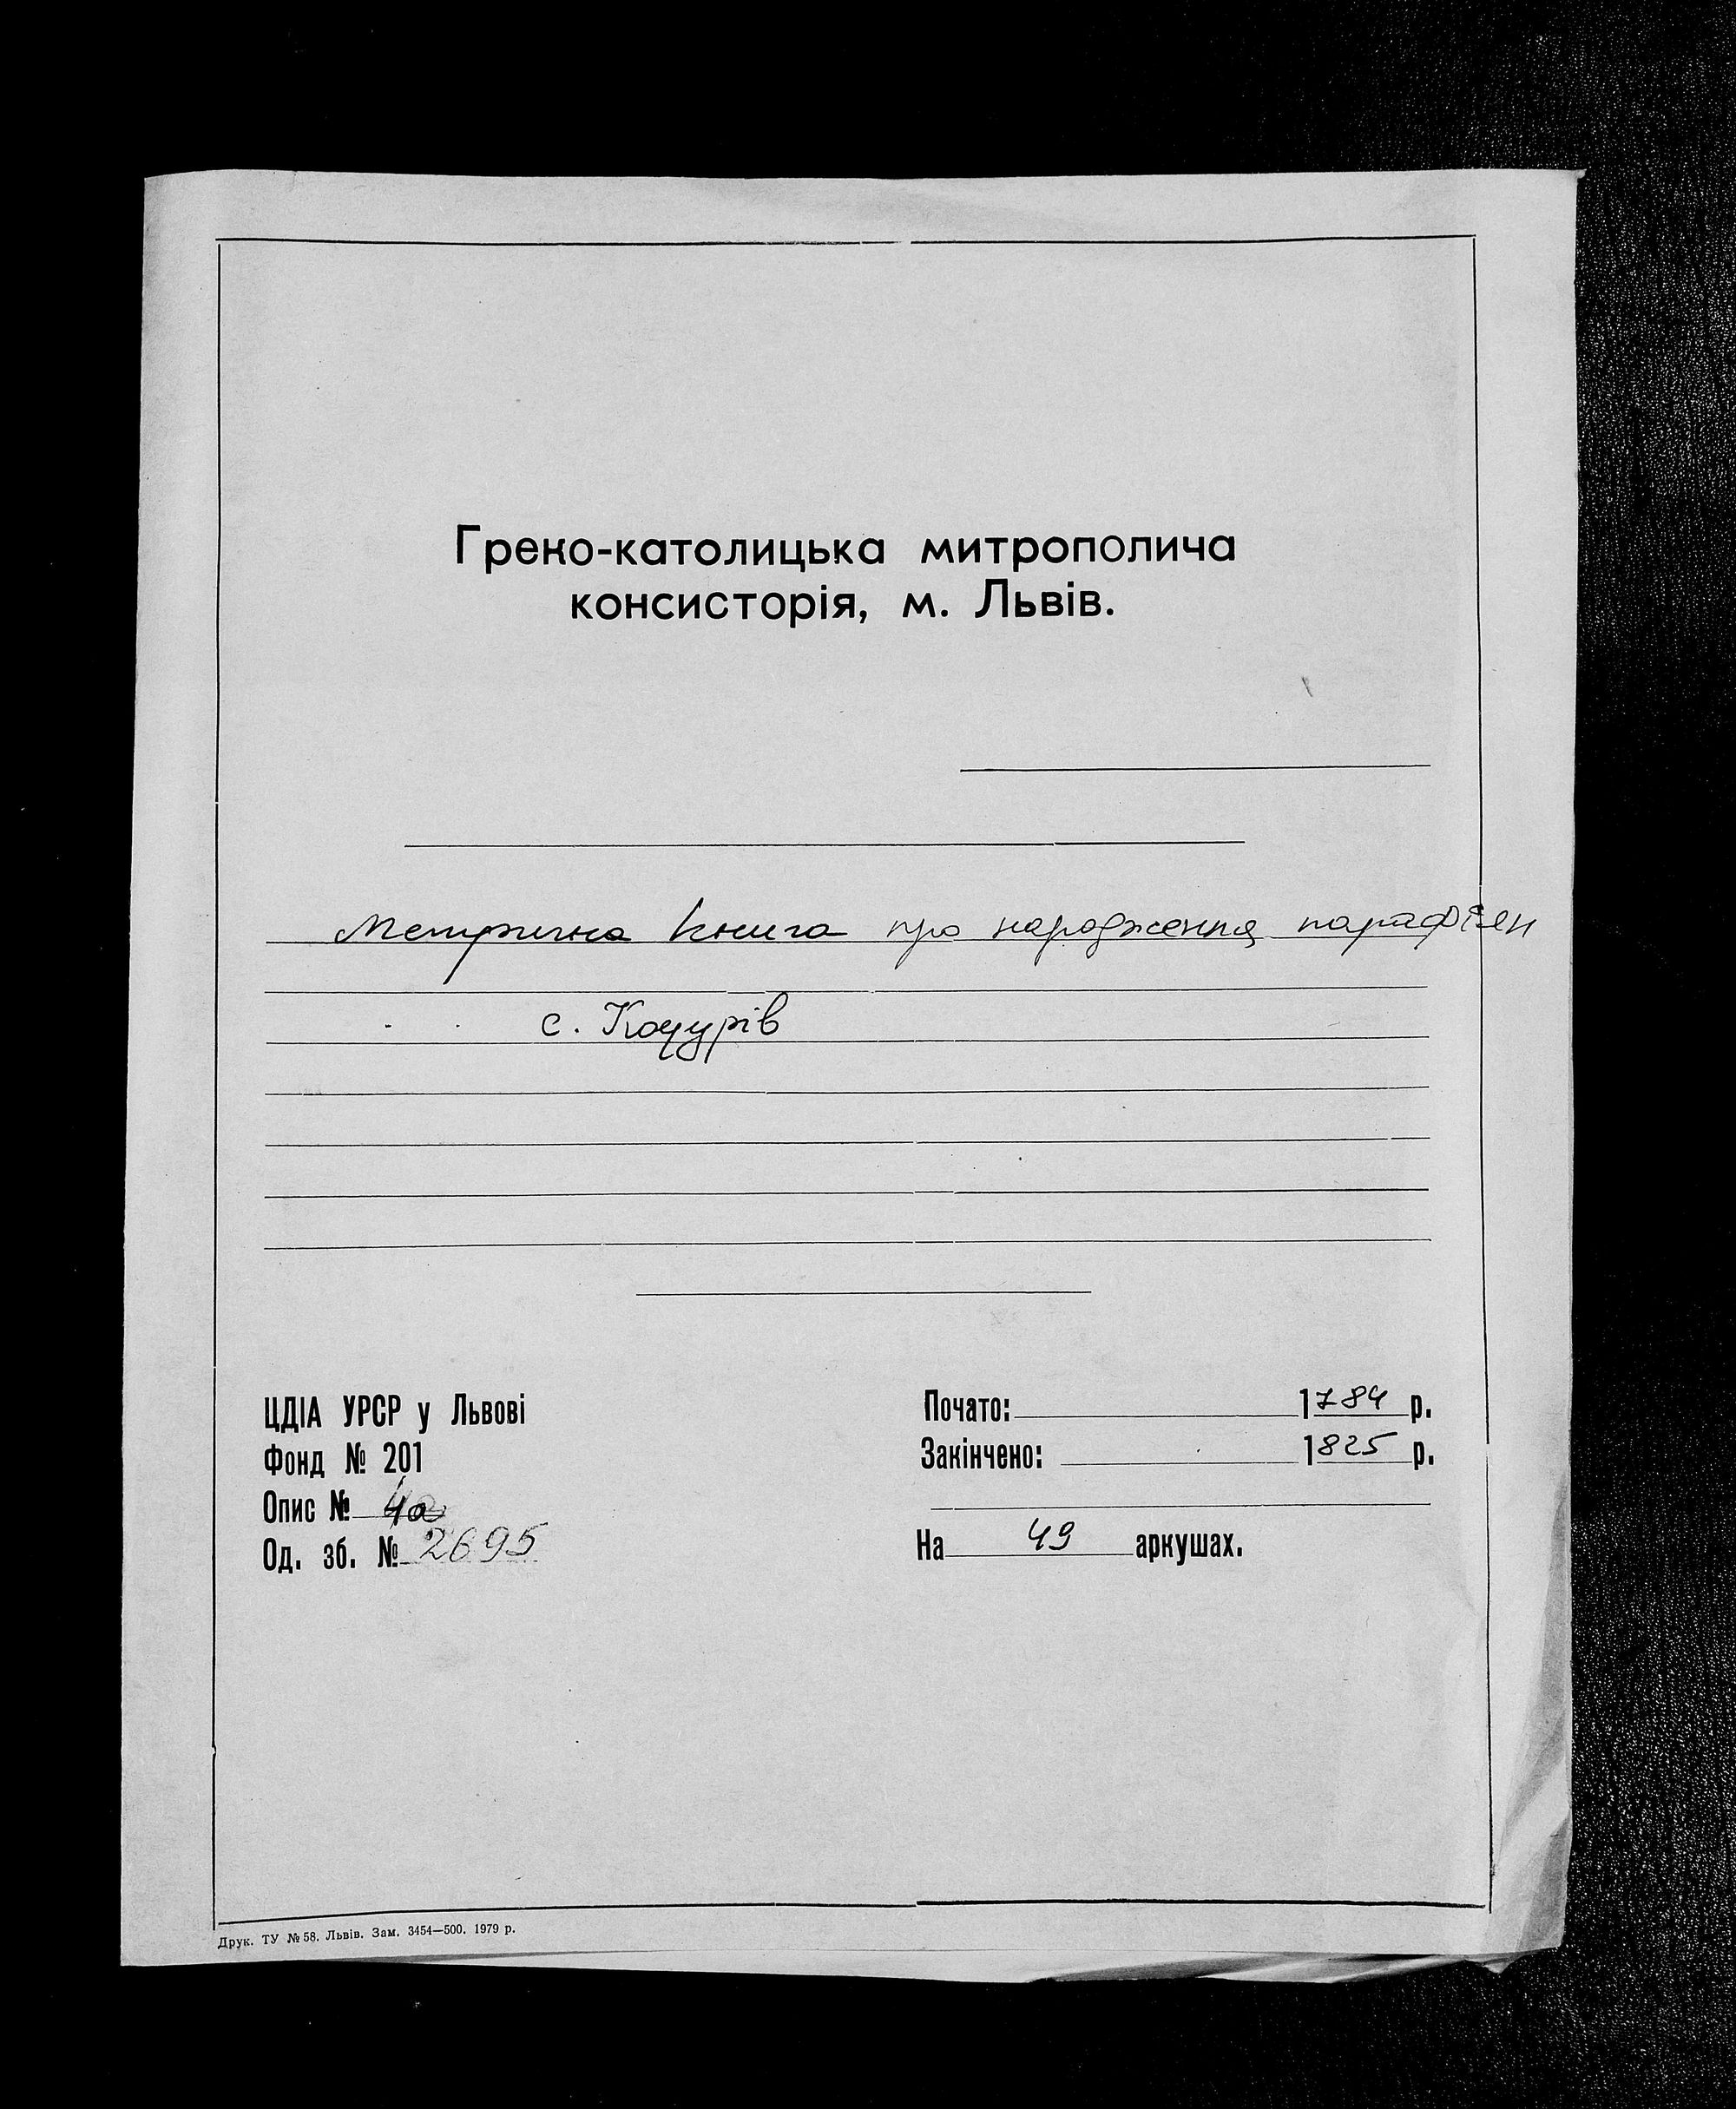 Греко-католицька митрополича
консисторія, м. Львів.
Метрична книга про народження парафіян
с. Коцурів
ЦДІА УРСР у Львові
Фонд № 201
Опис № 4а
Од. зб. № 2695
Почато: 1784 р.
Закінчено: 1825 р.
На 49 аркушах.
Друк. ТУ № 58. Львів. Зам. 3454—500. 1979 р.